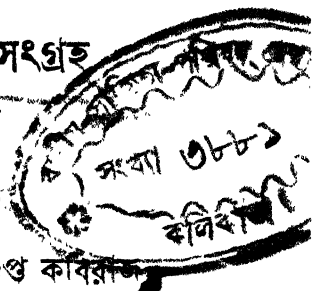 সংগ্রহ
সংখ্যা ৩৮৮১
কলিকাতা
প্ত কবিরাজ